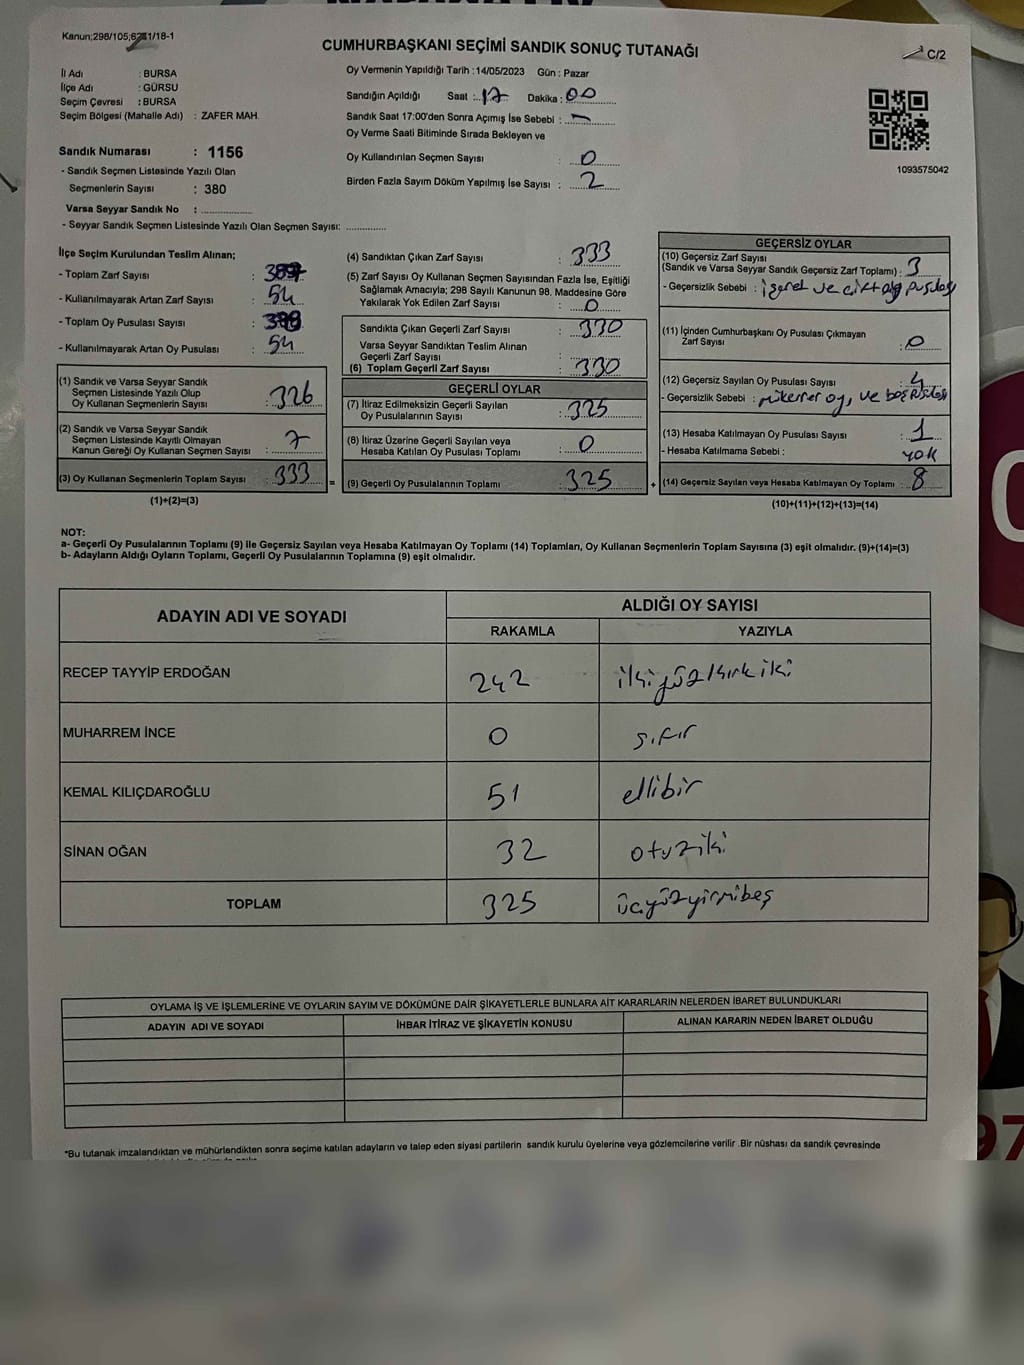 Kanun;298/105;6271/18-1
CUMHURBAŞKANI SEÇİMİ SANDIK SONUÇ TUTANAĞI
C/2
İl Adı : BURSA
İlçe Adı : GÜRSU
Seçim Çevresi : BURSA
Seçim Bölgesi (Mahalle Adı) : ZAFER MAH.
Oy Vermenin Yapıldığı Tarih :14/05/2023 Gün : Pazar
Sandığın Açıldığı Saat : 17 Dakika : 00
Sandık Saat 17:00'den Sonra Açımış İse Sebebi : -
Oy Verme Saati Bitiminde Sırada Bekleyen ve
Oy Kullandırılan Seçmen Sayısı : 0
Birden Fazla Sayım Döküm Yapılmış İse Sayısı : 2
1093575042
Sandık Numarası : 1156
- Sandık Seçmen Listesinde Yazılı Olan
Seçmenlerin Sayısı : 380
Varsa Seyyar Sandık No :
- Seyyar Sandık Seçmen Listesinde Yazılı Olan Seçmen Sayısı:
İlçe Seçim Kurulundan Teslim Alınan;
- Toplam Zarf Sayısı :
- Kullanılmayarak Artan Zarf Sayısı : 54
- Toplam Oy Pusulası Sayısı :
- Kullanılmayarak Artan Oy Pusulası : 54
(1) Sandık ve Varsa Seyyar Sandık
Seçmen Listesinde Yazılı Olup
Oy Kullanan Seçmenlerin Sayısı : 326
(2) Sandık ve Varsa Seyyar Sandık
Seçmen Listesinde Kayıtlı Olmayan
Kanun Gereği Oy Kullanan Seçmen Sayısı : 7
(3) Oy Kullanan Seçmenlerin Toplam Sayısı : 333
(1)+(2)=(3)
=
(4) Sandıktan Çıkan Zarf Sayısı : 333
(5) Zarf Sayısı Oy Kullanan Seçmen Sayısından Fazla İse, Eşitliği
Sağlamak Amacıyla; 298 Sayılı Kanunun 98. Maddesine Göre
Yakılarak Yok Edilen Zarf Sayısı : 0
Sandıkta Çıkan Geçerli Zarf Sayısı : 330
Varsa Seyyar Sandıktan Teslim Alınan
Geçerli Zarf Sayısı :
(6) Toplam Geçerli Zarf Sayısı : 330
GEÇERLİ OYLAR
(7) İtiraz Edilmeksizin Geçerli Sayılan
Oy Pusulalarının Sayısı : 325
(8) İtiraz Üzerine Geçerli Sayılan veya
Hesaba Katılan Oy Pusulası Toplamı : 0
(9) Geçerli Oy Pusulalarının Toplamı : 325
+
GEÇERSİZ OYLAR
(10) Geçersiz Zarf Sayısı
(Sandık ve Varsa Seyyar Sandık Geçersiz Zarf Toplamı) : 3
- Geçersizlik Sebebi : işaret ve çift oy pusulası
(11) İçinden Cumhurbaşkanı Oy Pusulası Çıkmayan
Zarf Sayısı : 0
(12) Geçersiz Sayılan Oy Pusulası Sayısı : 4
- Geçersizlik Sebebi : mükerrer oy, ve boş pusula
(13) Hesaba Katılmayan Oy Pusulası Sayısı : 1
- Hesaba Katılmama Sebebi : YOK
(14) Geçersiz Sayılan veya Hesaba Katılmayan Oy Toplamı : 8
(10)+(11)+(12)+(13)=(14)
NOT:
a- Geçerli Oy Pusulalarının Toplamı (9) ile Geçersiz Sayılan veya Hesaba Katılmayan Oy Toplamı (14) Toplamları, Oy Kullanan Seçmenlerin Toplam Sayısına (3) eşit olmalıdır. (9)+(14)=(3)
b- Adayların Aldığı Oyların Toplamı, Geçerli Oy Pusulalarının Toplamına (9) eşit olmalıdır.
ADAYIN ADI VE SOYADI ALDIĞI OY SAYISI
RAKAMLA YAZIYLA
RECEP TAYYİP ERDOĞAN 242 ikiyüzkırkiki
MUHARREM İNCE 0 sıfır
KEMAL KILIÇDAROĞLU 51 ellibir
SİNAN OĞAN 32 otuziki
TOPLAM 325 üçyüzyirmibeş
OYLAMA İŞ VE İŞLEMLERİNE VE OYLARIN SAYIM VE DÖKÜMÜNE DAİR ŞİKAYETLERLE BUNLARA AİT KARARLARIN NELERDEN İBARET BULUNDUKLARI
ADAYIN ADI VE SOYADI İHBAR İTİRAZ VE ŞİKAYETİN KONUSU ALINAN KARARIN NEDEN İBARET OLDUĞU
*Bu tutanak imzalandıktan ve mühürlendikten sonra seçime katılan adayların ve talep eden siyasi partilerin sandık kurulu üyelerine veya gözlemcilerine verilir .Bir nüshası da sandık çevresinde
97